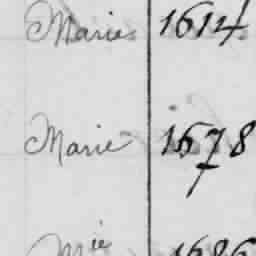 Marie 1614
Marie 1678
Mie 1686